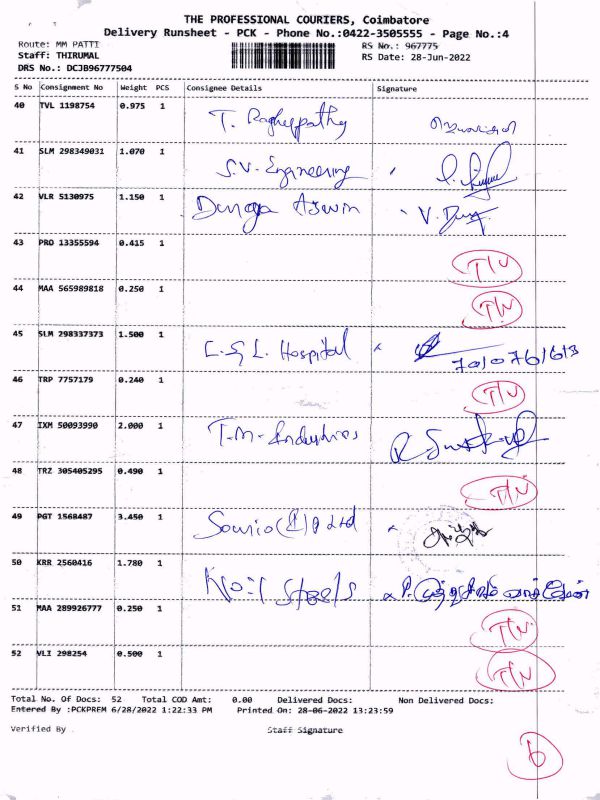 THE PROFESSIONAL COURIERS, Coimbatore
Delivery Runsheet - PCK - Phone No.:0422-3505555 - Page No.:4
Route: MM PATTI RS No.: 967775
Staff: THIRUMAL RS Date: 28-Jun-2022
DRS No.: DCJB96777504
S No Consignment No Weight PCS Consignee Details Signature
40 TVL 1198754 0.975 1 T. Raghuppathy
41 SLM 298349031 1.070 1 S.V. Engineering
42 VLR 5130975 1.150 1 Durga Aswin
43 PRO 13355594 0.415 1 T/N
44 MAA 565989818 0.250 1 T/N
45 SLM 298337373 1.500 1 L.G.L. Hospital
46 TRP 7757179 0.240 1 T/N
47 IXM 50093990 2.000 1 T.M. Industries
48 TRZ 305405295 0.490 1 T/N
49 PGT 1568487 3.450 1 Ltd
50 KRR 2560416 1.780 1 No:1 Steels
51 MAA 289926777 0.250 1 T/N
52 VLI 298254 0.500 1 T/N
Total No. Of Docs: 52 Total COD Amt: 0.00 Delivered Docs: Non Delivered Docs:
Entered By :PCKPREM 6/28/2022 1:22:33 PM Printed On: 28-06-2022 13:23:59
Verified By Staff Signature
6